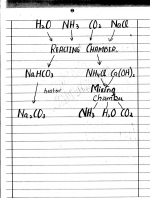 H₂O NH₃ CO₂ NaCl
REACTING CHAMBER.
NaHCO₃ NH₄Cl Ca(OH)₂
heater Mixing
Chamber
Na₂CO₃ (NH₃ H₂O CO₂